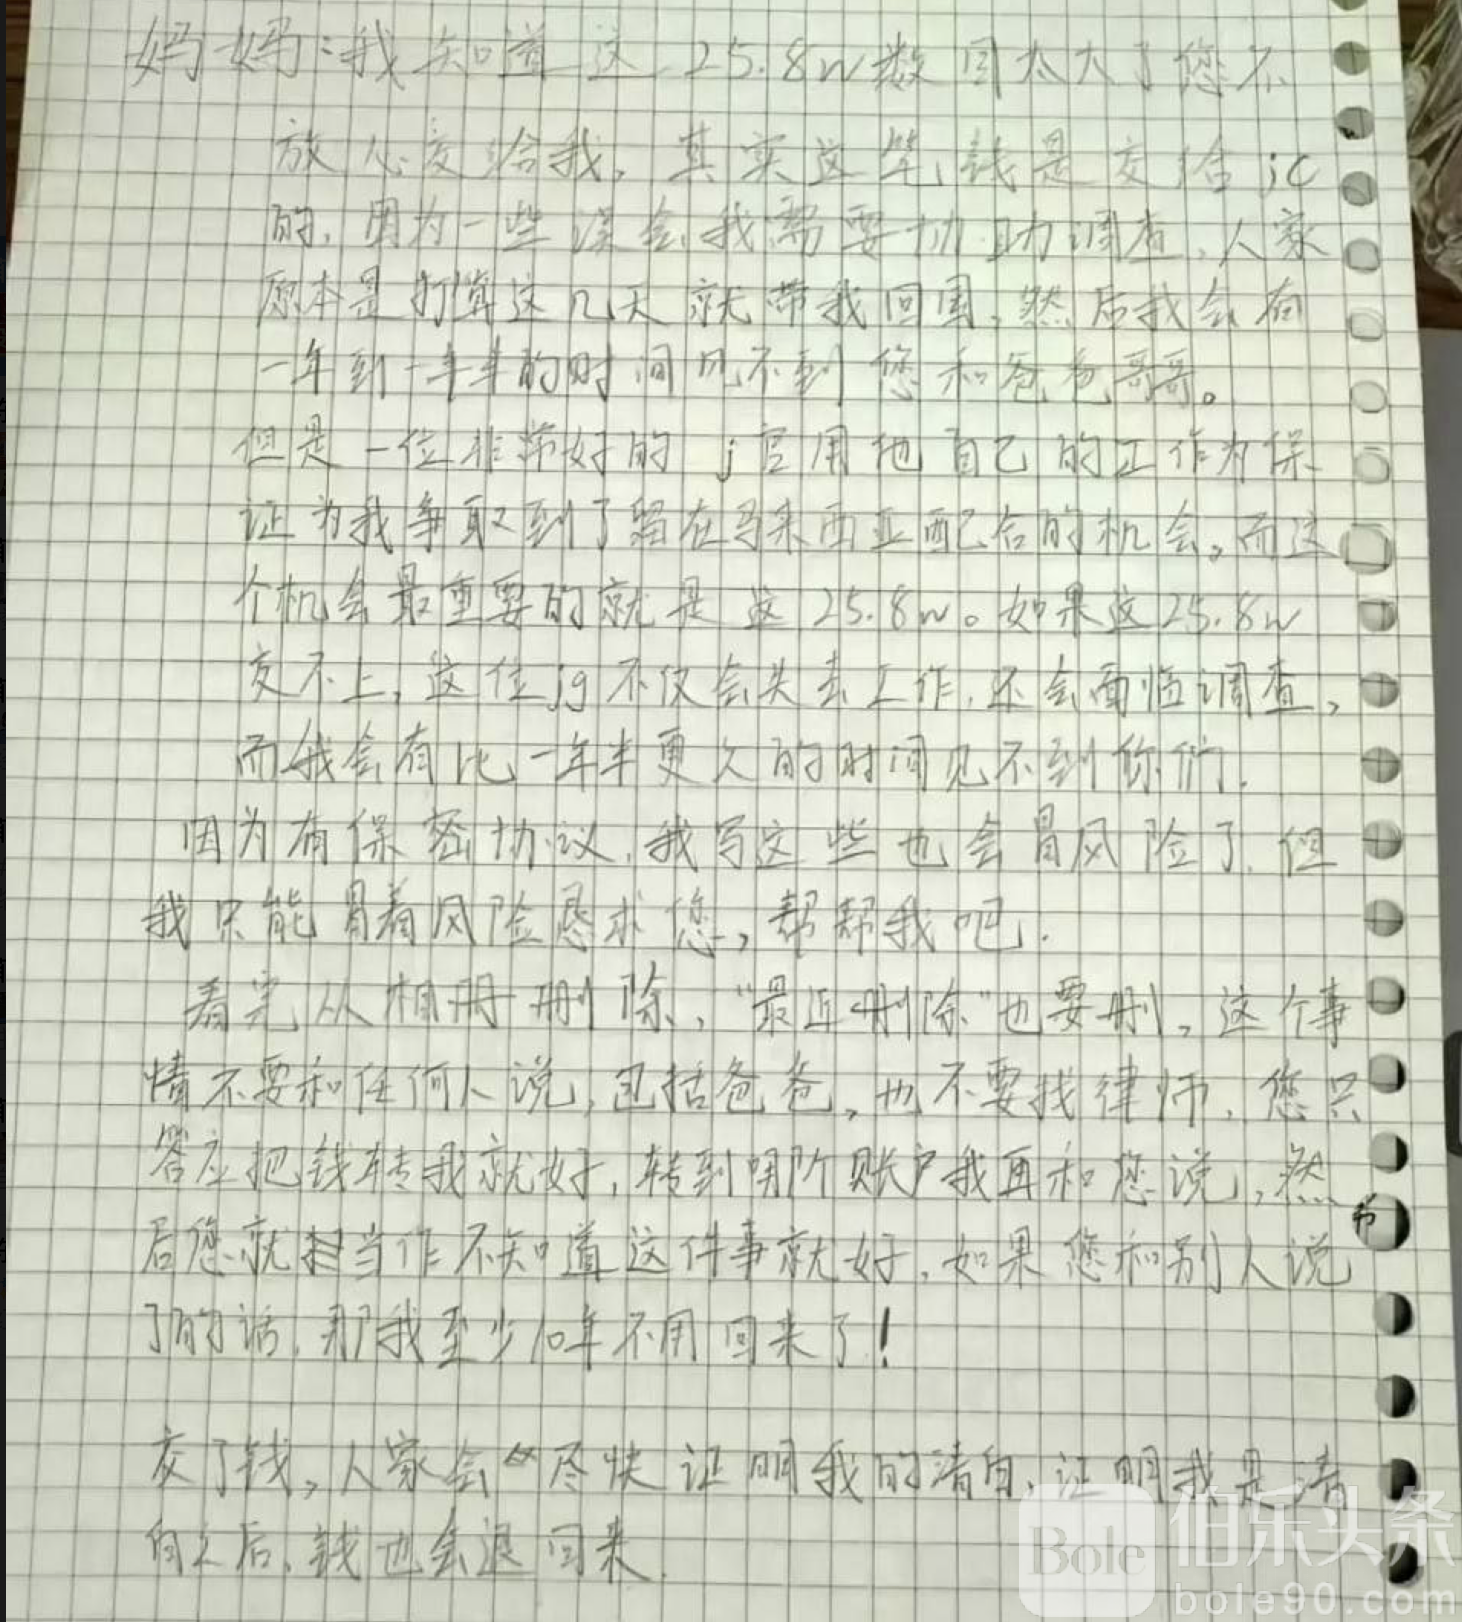 妈妈:我知道这25.8w数目太大了您不
放心交给我。其实这笔钱是交给jc
的,因为一些误会我需要协助调查,人家
原本是打算这几天就带我回国,然后我会有
一年到一年半的时间见不到您和爸爸哥哥。
但是一位非常好的j官用他自己的工作为保
证为我争取到了留在马来西亚配合的机会。而这
个机会最重要的就是这25.8w。如果这25.8w
交不上,这位jg不仅会失去工作,还会面临调查,
而我会有比一年半更久的时间见不到你们.
因为有保密协议,我写这些也会冒风险了,但
我只能冒着风险恳求您,帮帮我吧.
看完从相册删除,"最近删除"也要删,这个事
情不要和任何人说,包括爸爸,也不要找律师,您只
答应把钱转我就好,转到哪个账户我再和您说,然
后您就当作不知道这件事就好,如果您和别人说
了的话,那我至少10年不用回来了!
交了钱,人家会尽快证明我的清白,证明我是清
白之后,钱也会退回来.
Bole 伯乐头条
bole90.com